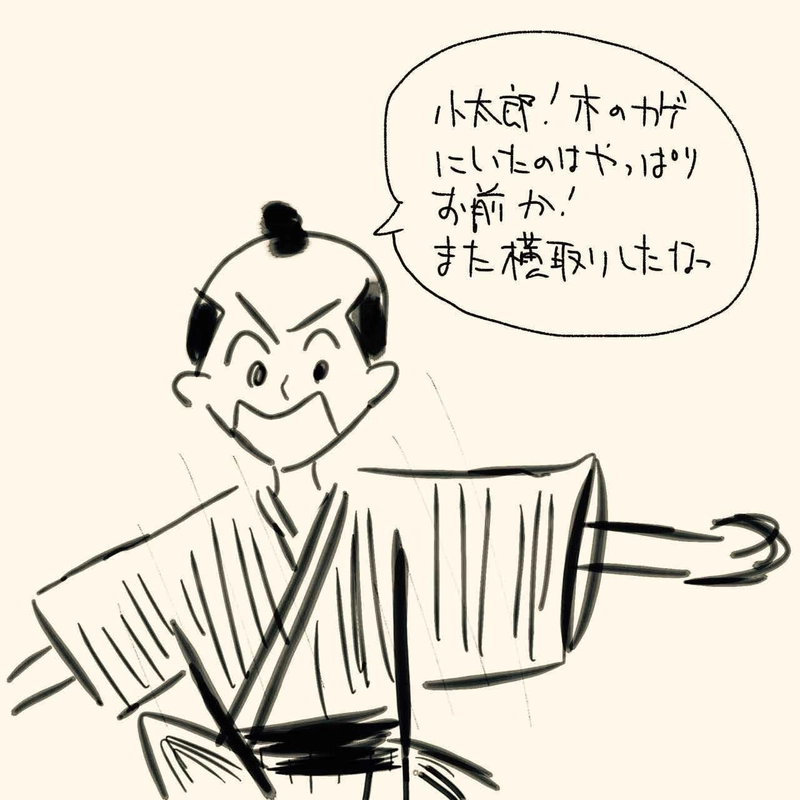 小太郎！木のカゲ
にいたのはやっぱり
お前か！
また横取りしたなっ